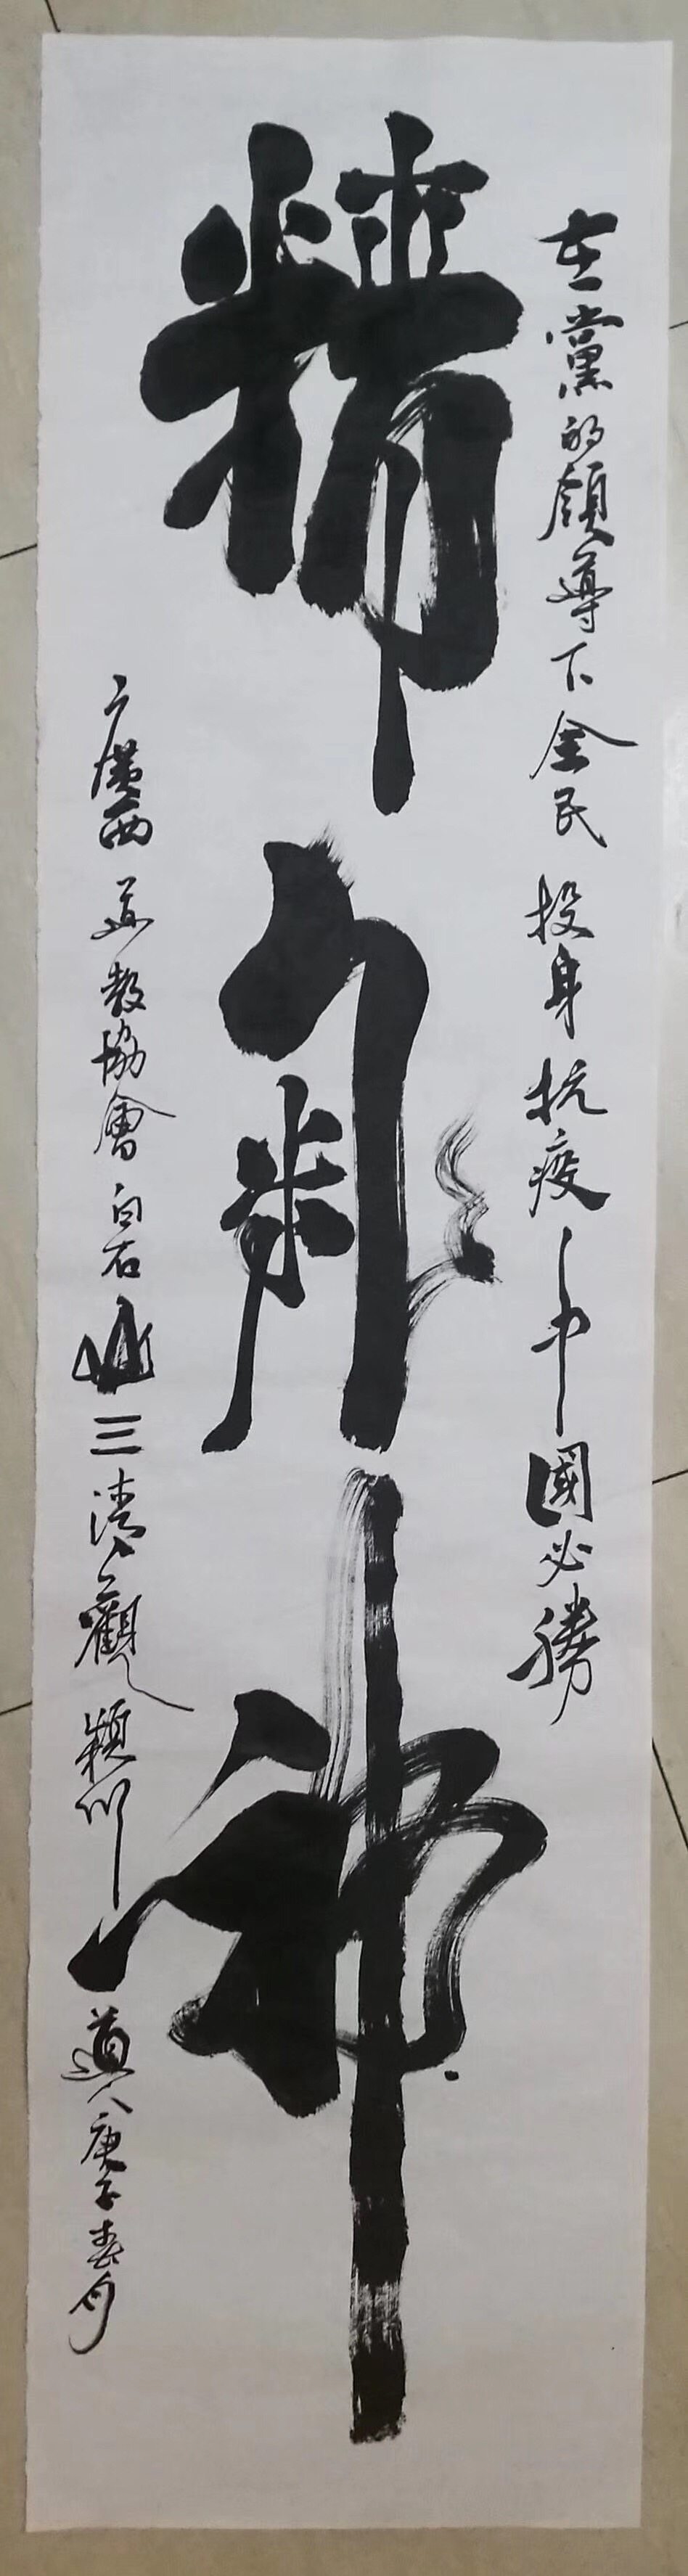 在黨的領導下全民投身抗疫中國必勝
精氣神
廣西道教協會白石山三清觀穎川道人庚子春月